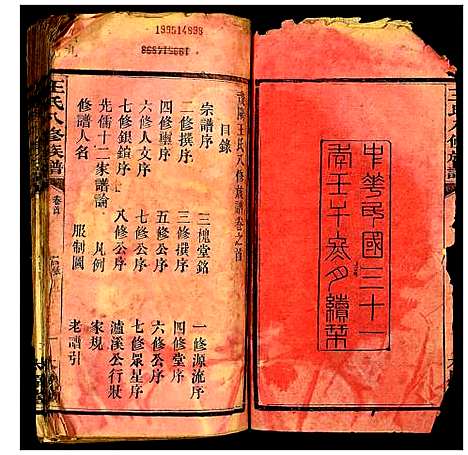 中華民國三十一
年壬午冬月續栞
199514898
王氏八修族譜
卷首
目錄
王氏八修族譜卷之首
目錄
宗譜序
三槐堂銘
一修源流序
二修撰序
三修撰序
四修堂序
四修璽序
五修公序
六修公序
六修人文序
七修公序
七修眾星序
七修銀鎖序
八修公序
瀘溪公行狀
先儒十二家譜論
凡例
家規
修譜人名
服制圖
老譜引